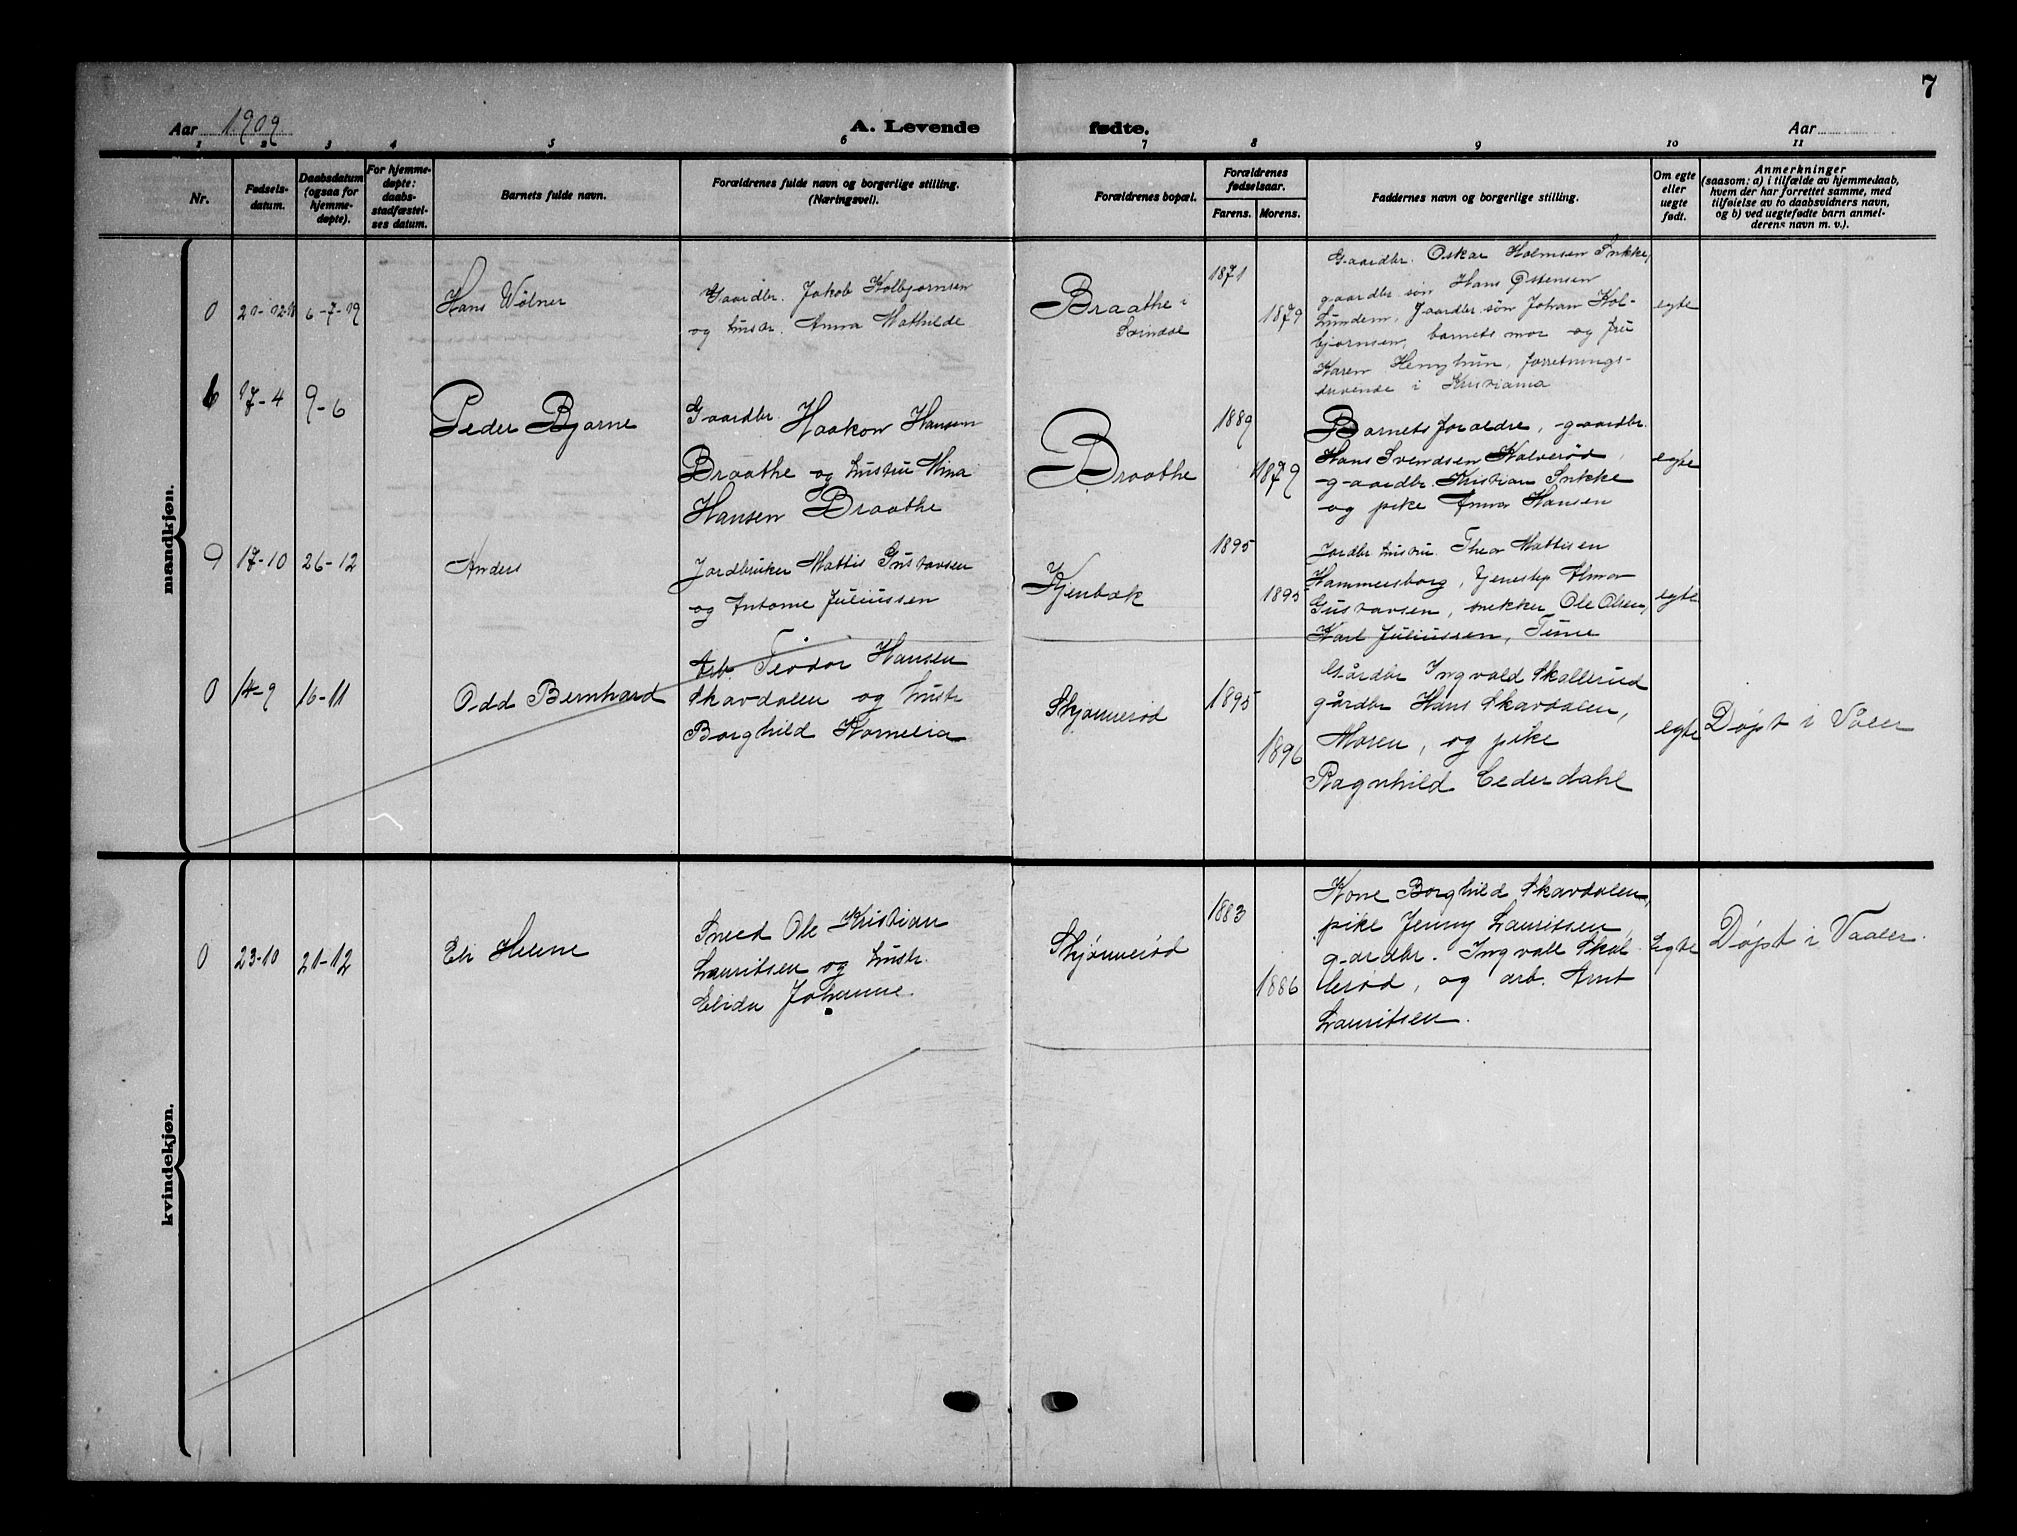 7
Aar 1909
A. Levende fødte.
Aar
1 2 3 4 5 6 7 8 9 10 11
Nr.
Fødsels-
datum.
Daabsdatum
(ogsaa for
hjemme-
døpte).
For hjemme-
døpte:
daabs-
stadfæstel-
ses datum.
Barnets fulde navn.
Forældrenes fulde navn og borgerlige stilling.
(Næringsvei).
Forældrenes bopæl.
Forældrenes
fødselsaar.
Farens. Morens.
Faddernes navn og borgerlige stilling.
Om egte
eller
uegte
født.
Anmerkninger
(saasom: a) i tilfælde av hjemmedaab,
hvem der har forrettet samme, med
tilføielse av to daabsvidners navn,
og b) ved uegtefødte barn anmel-
derens navn m. v.).
mandkjøn.
0 21-12-18 6-7-19
Hans Wølner
Gaardbr. Jakob Kolbjørnsen
og hustr. Anna Mathilde
Braathe i
Svindal
1871
1879
Gaardbr. Oskar Holmsen Snekke,
gaardbr. søn Hans Østensen
Lundem, Gaardbr. søn Johan Kol-
bjørnsen, barnets mor og fru
Karen forretnings-
drivende i Kristiania
egte
6 17-4 9-6
Peder Bjarne
Gaardbr. Haakon Hansen
Braathe og hustru Mina
Hansen Braathe
Braathe
1889
1879
Barnets foraeldre, gaardbr.
Hans Svendsen Kolverød,
gaardbr. Kristian Snekke
og pike Anna Hansen
egte
9 17-10 26-12
Anders
Jordbruker Mattis Gustavsen
og Antonie Juliussen
Kjenbæk
1895
1895
Jordbr hustru Thea Mattisen
Hammersborg, tjenestep Alma
Gustavsen, snekker Ole Olsen,
Karl Juliussen, Tune
egte
0 14-9 16-11
Odd Bernhard
Arb. Teodor Hansen
Skavdalen og hustr
Borghild Kornelia
Skjønnerød
1895
1896
Gårdbr Ingvald Skallerud
gårdbr Hans Skavdalen,
Moren, og pike
Ragnhild Cederdahl
egte
Døpt i Våler
kvindekjøn.
0 23-10 21-12
Eli Helene
Smed Ole Kristian
Lauritsen og hustr.
Elida Johanne.
Skjønnerød
1883
1886
Kone Borghild Skavdalen,
pike Jenny Lauritsen,
gardbr. Ingvall Skal-
lerød, og arb. Arnt
Lauritsen.
Egte
Døpt i Vaaler.